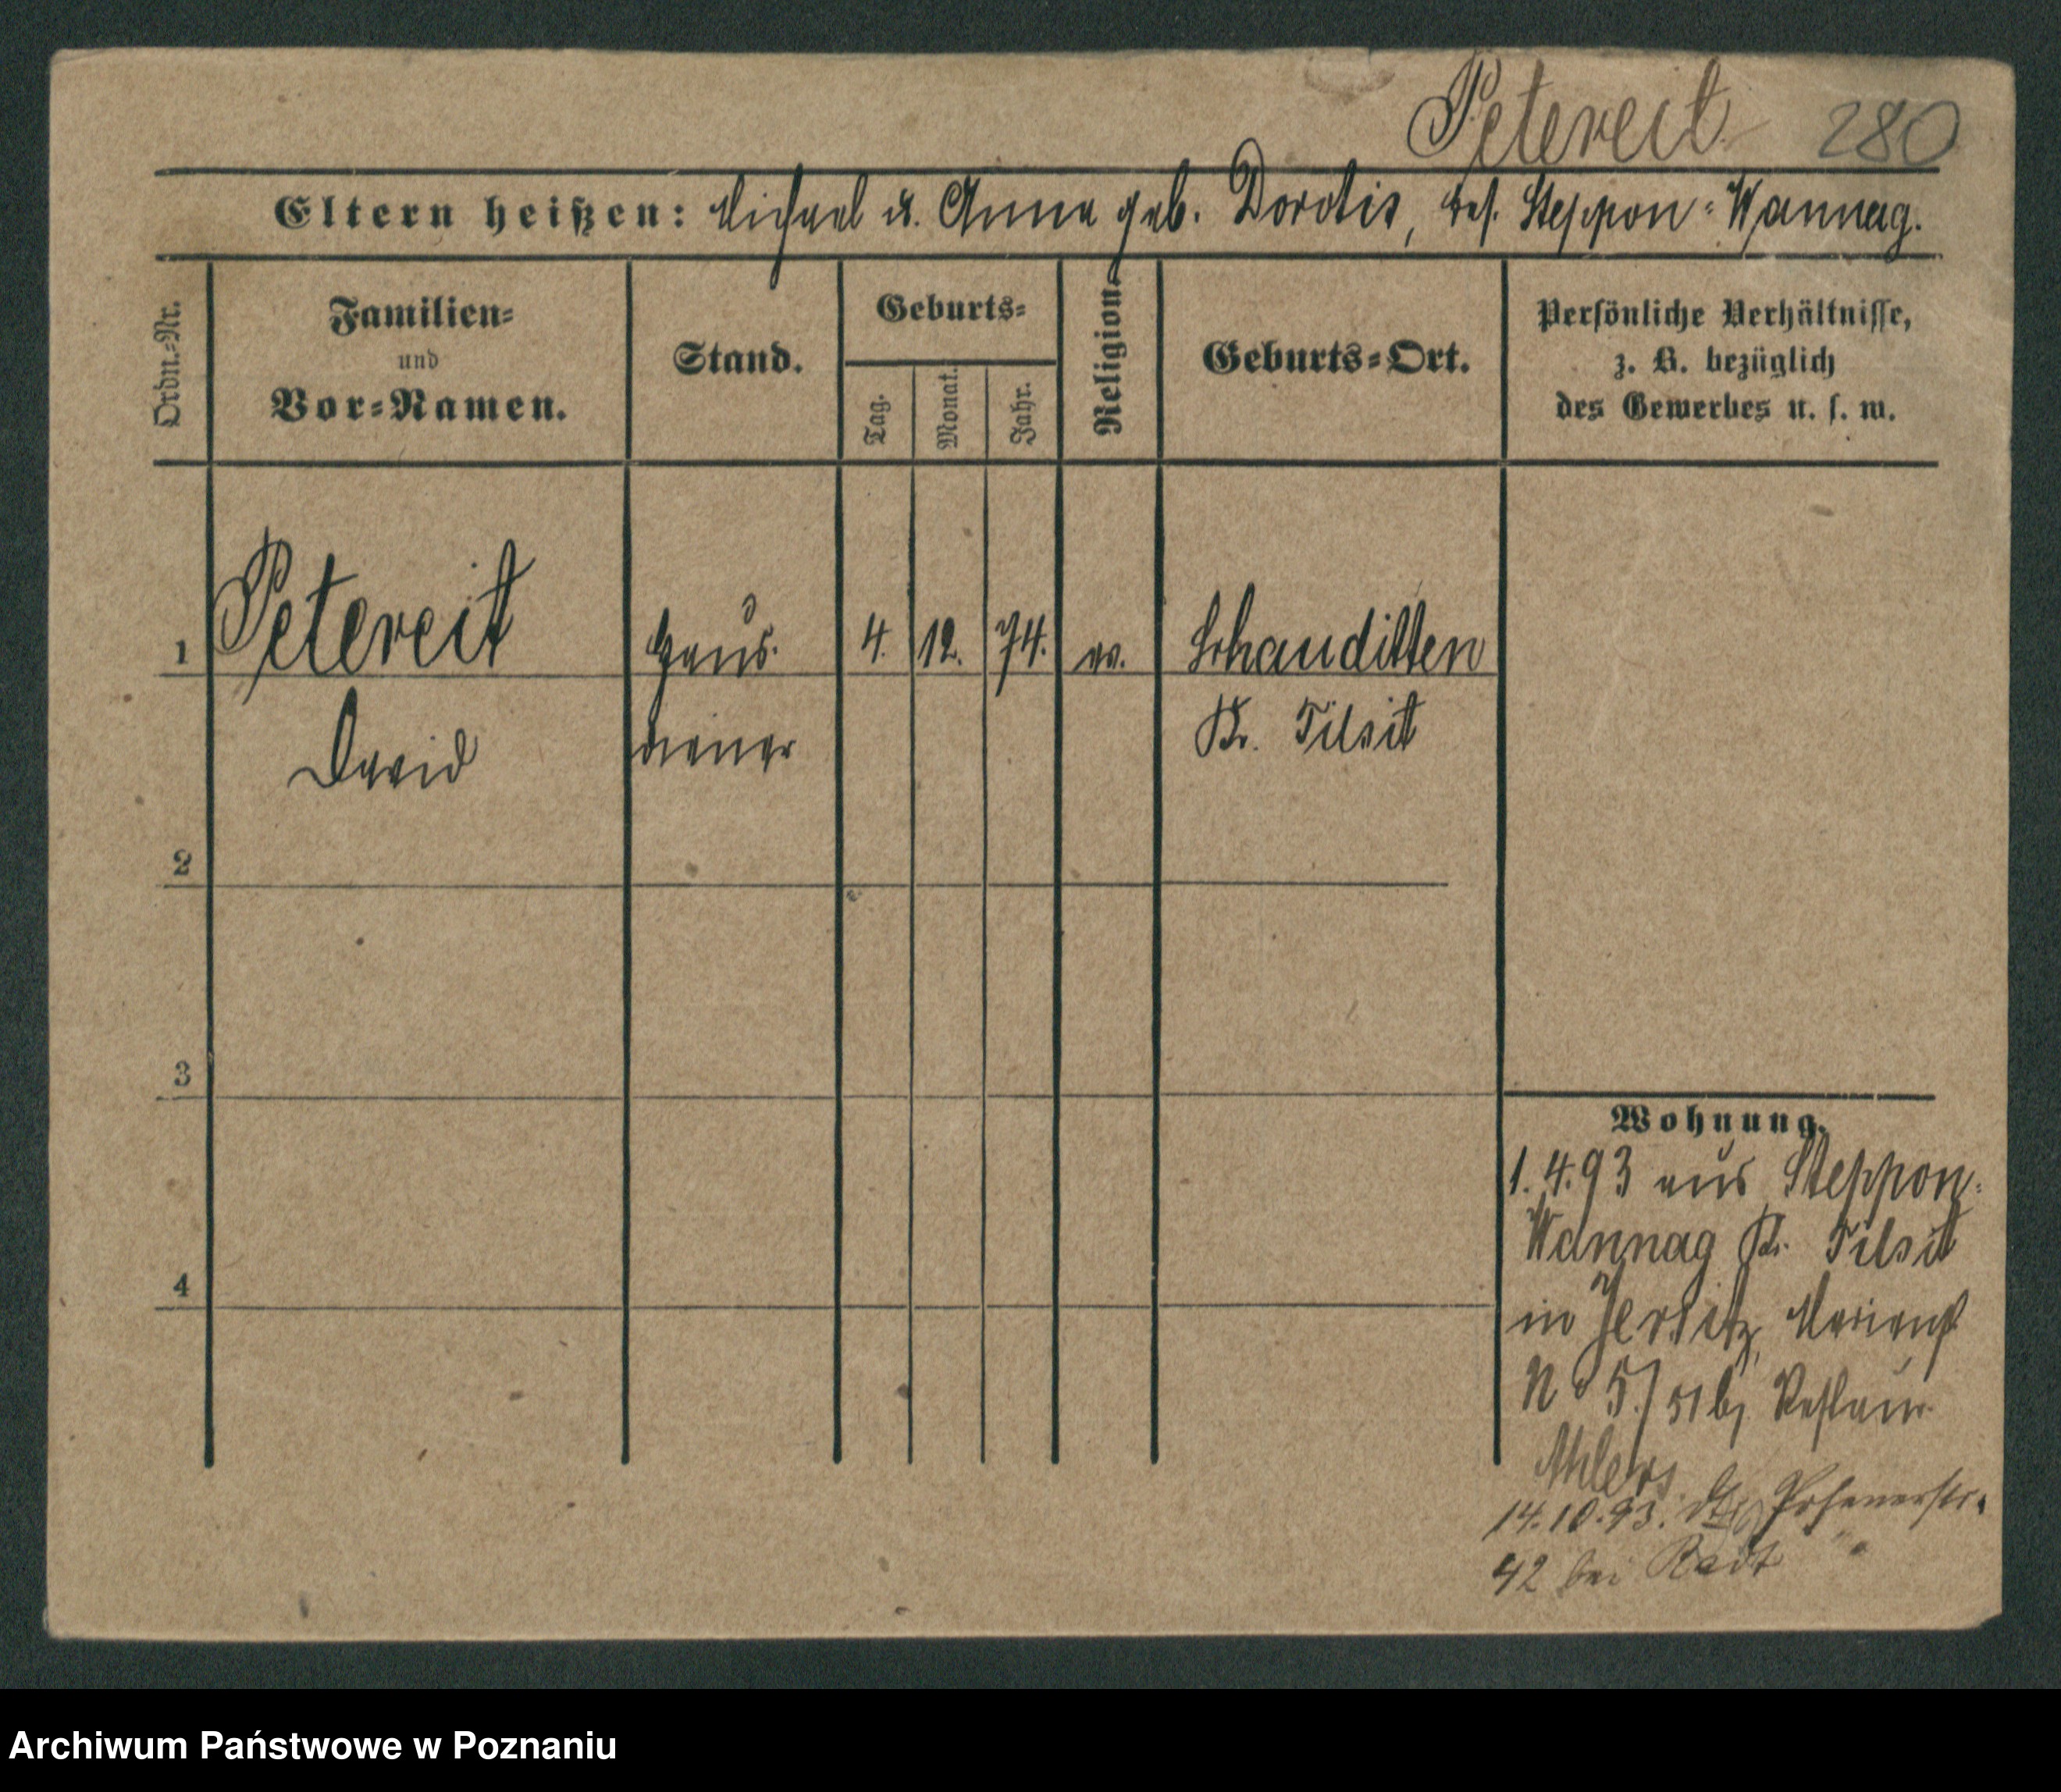 Petereit 280
Eltern heißen: Michael u. Anna geb. Dorotis, Steppon=Wannag.
Ordn.-Nr.
Familien=
und
Vor=Namen.
Stand.
Geburts=
Tag.
Monat.
Jahr.
Religion.
Geburts=Ort.
Persönliche Verhältnisse,
z. B. bezüglich
des Gewerbes u. s. w.
1 Petereit Haus- 4. 12. 74. ev. Schauditten
David diener Kr. Tilsit
2
3
4
Wohnung.
1.4.93 aus Steppon-
Wannag Kr. Tilsit
in Jersitz, Marienst
No 5./51 bj Restaur
Ahlers.
14.10.93. Posenerstr.
42 bei Radt
Archiwum Państwowe w Poznaniu